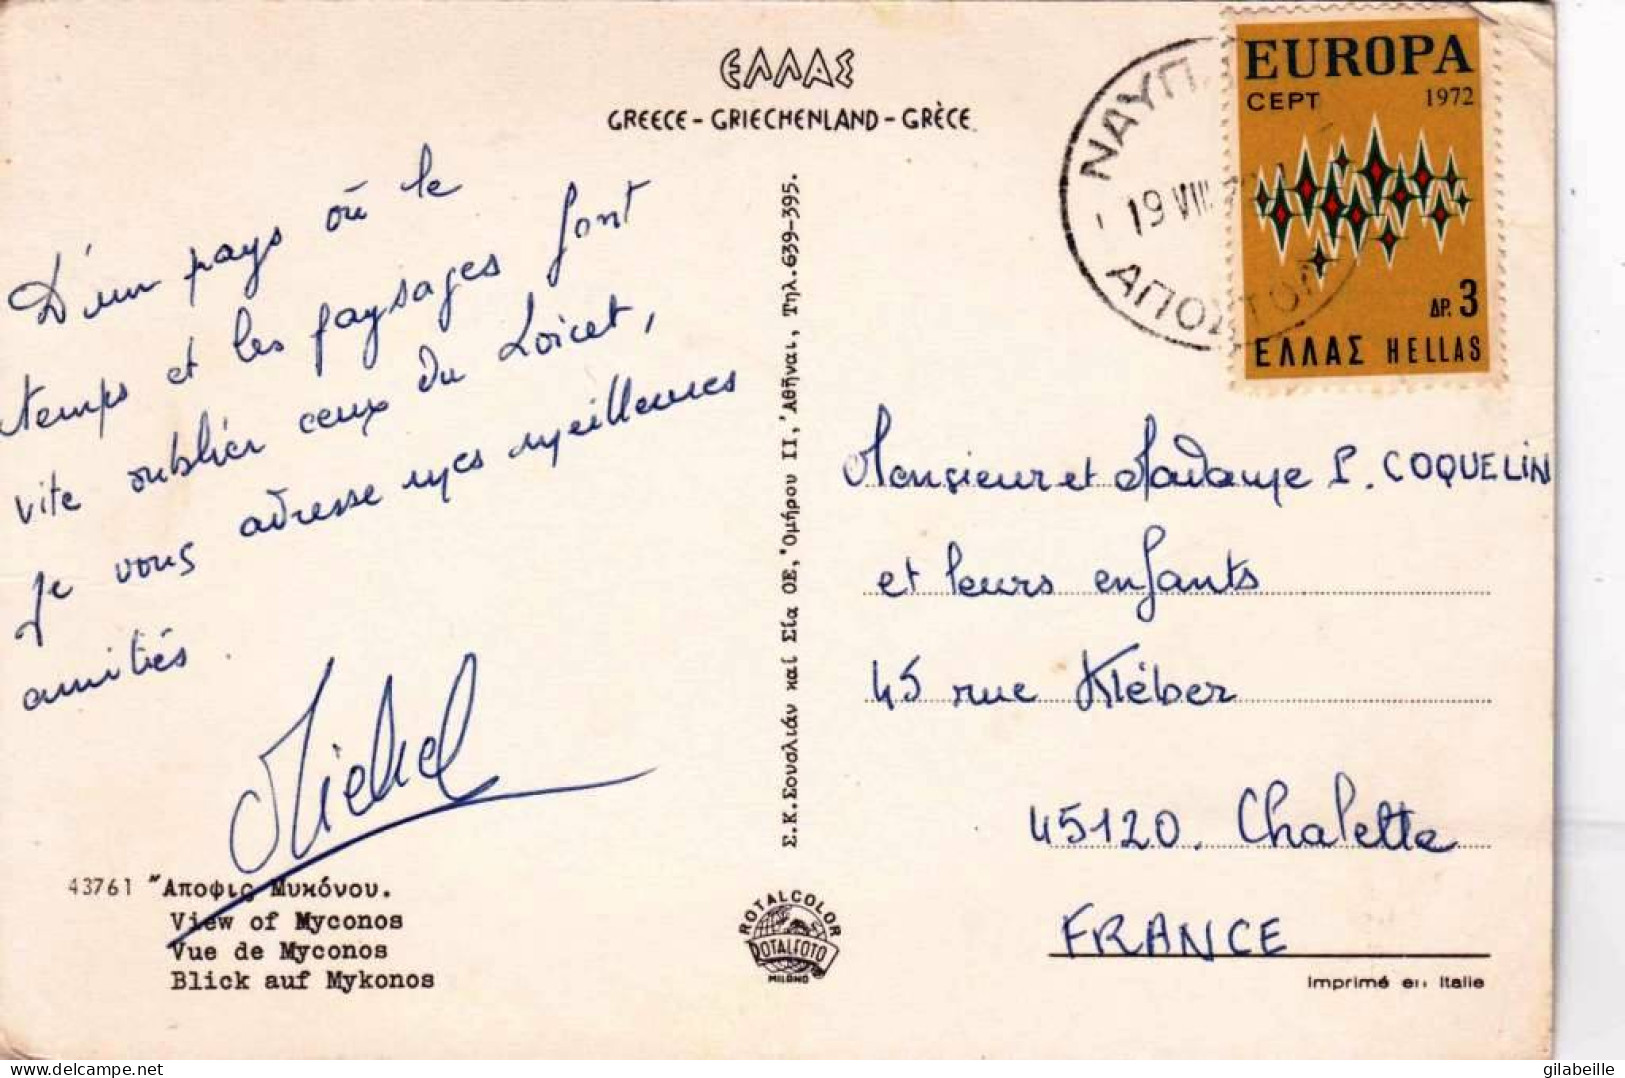 ΕΛΛΑΣ
GREECE - GRIECHENLAND - GRÈCE
D'un pays où le
temps et les paysages font
vite oublier ceux du Loiret,
je vous adresse mes meilleures
amitiés.
Michel
43761 "Αποφις Μυκόνου.
View of Myconos
Vue de Myconos
Blick auf Mykonos
Σ.Κ.Σουσλιάν καί Σία ΟΕ, Ὁμήρου ΙΙ, Ἀθῆναι, Τηλ.639-395.
ROTALCOLOR
ROTALFOTO
MILANO
EUROPA
CEPT 1972
ΔΡ. 3
ΕΛΛΑΣ HELLAS
19 VIII
Monsieur et Madame P. COQUELIN
et leurs enfants
45 rue Kléber
45120. Chalette
FRANCE
Imprimé en Italie
gilabeille